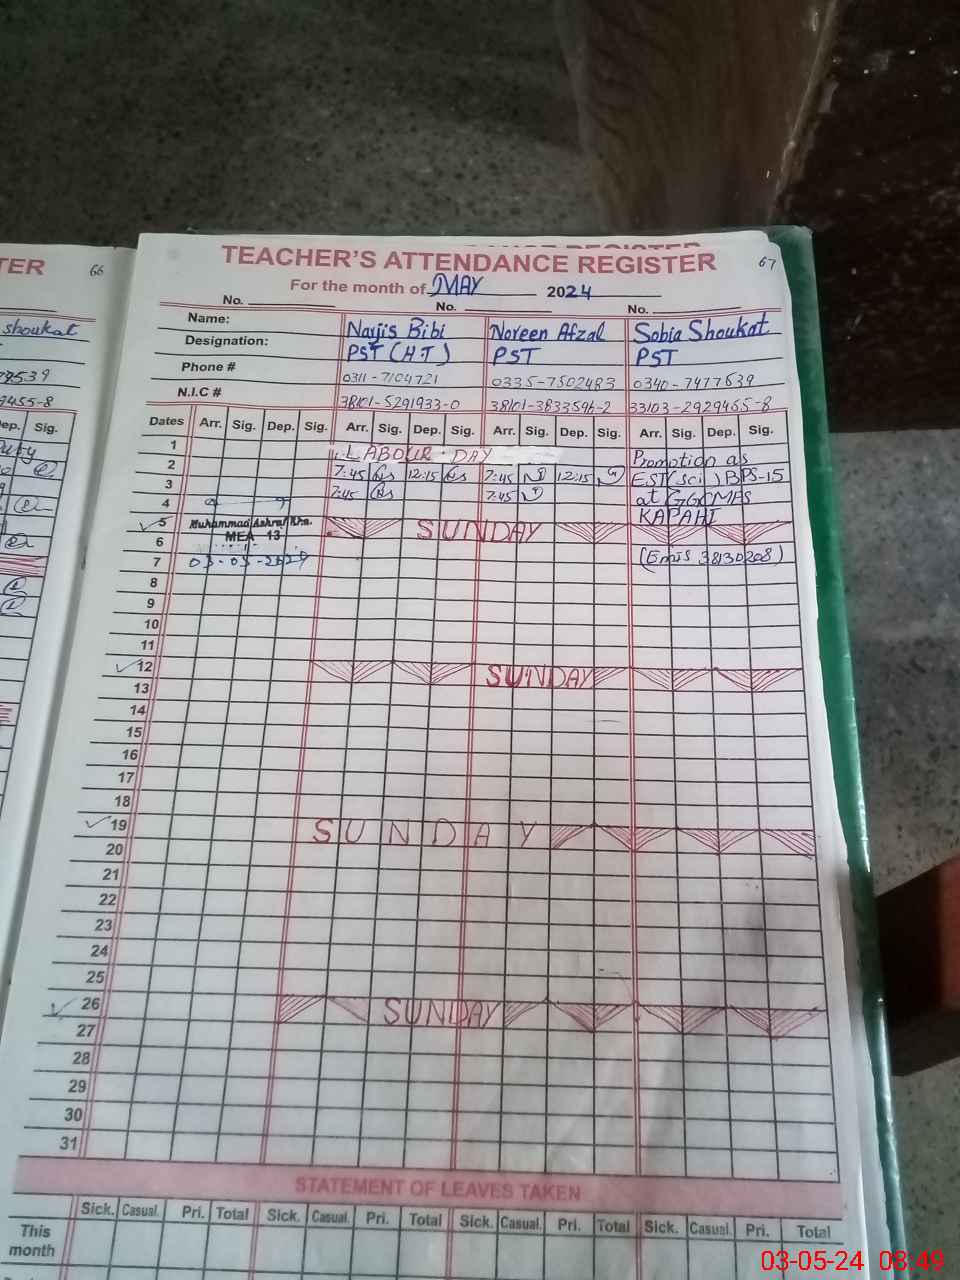 TER
66
shoukat
Dep. Sig.
TEACHER'S ATTENDANCE REGISTER
67
For the month of MAY 2024
No. No. No.
Name: Narjis Bibi Noreen Afzal Sobia Shoukat
Designation: PST (H.T) PST PST
Phone # 0311-7104721 0335-7502483 0340-7477639
N.I.C # 38101-5291933-0 38101-3833596-2 33103-2929465-8
Dates Arr. Sig. Dep. Sig. Arr. Sig. Dep. Sig. Arr. Sig. Dep. Sig. Arr. Sig. Dep. Sig.
1 LABOUR DAY Promotion as
2 7:45 12:15 7:45 12:15 EST(sci) BPS-15
3 7:45 7:45 at GGCMPS
4 KAPAHI
5 Muhammad Ashraf SUNDAY
6 MEA 13 (Emis 38130208)
7 03-05-2024
8
9
10
11
12 SUNDAY
13
14
15
16
17
18
19 SUNDAY
20
21
22
23
24
25
26 SUNDAY
27
28
29
30
31
STATEMENT OF LEAVES TAKEN
Sick. Casual. Pri. Total Sick. Casual. Pri. Total Sick. Casual. Pri. Total Sick. Casual. Pri. Total
This
month
03-05-24 08:49